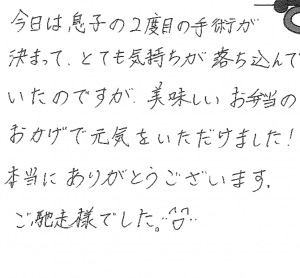 今日は息子の2度目の手術が
決まって、とても気持ちが落ち込んで
いたのですが、美味しいお弁当の
おかげで元気をいただけました!
本当にありがとうございます。
ご馳走様でした。